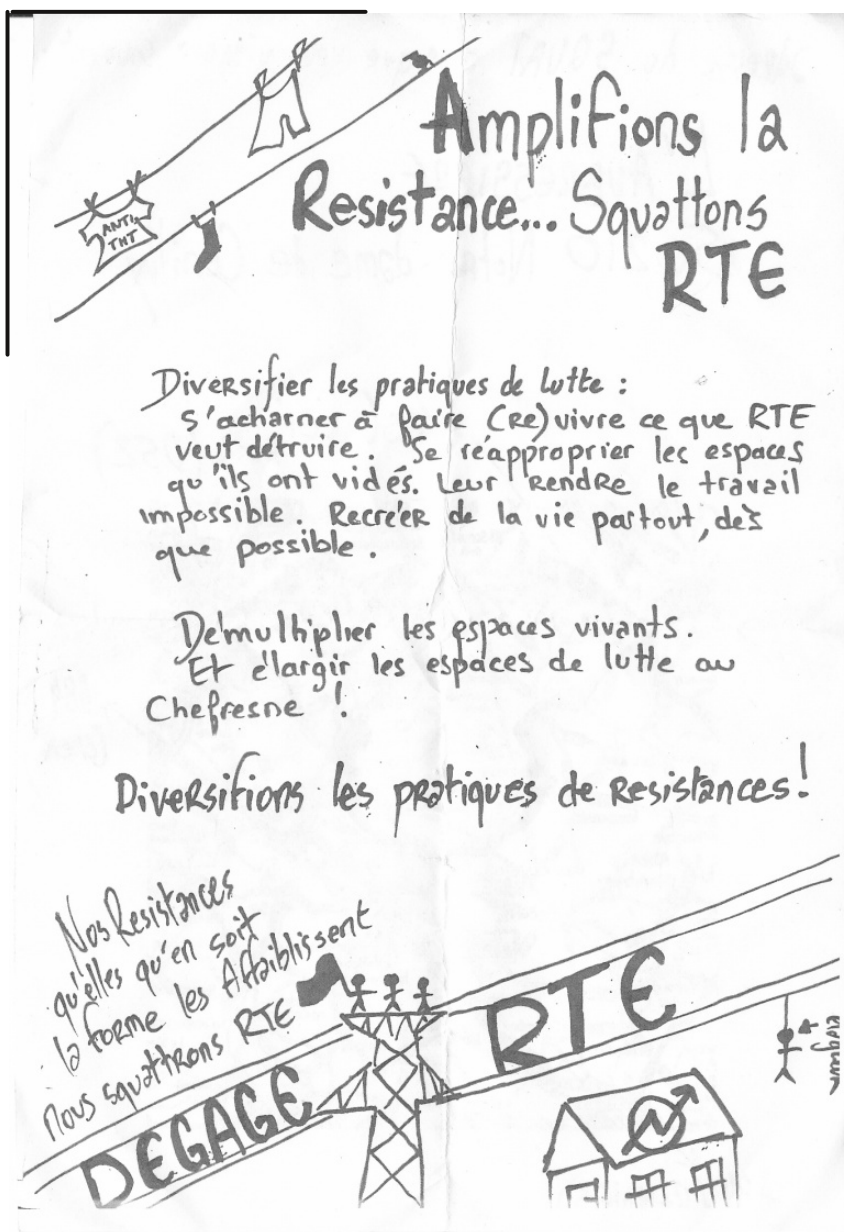 Amplifions la
Resistance... Squattons
RTE
ANTI
THT
Diversifier les pratiques de lutte :
s'acharner à faire (Re)vivre ce que RTE
veut détruire. Se réapproprier les espaces
qu'ils ont vidés. Leur rendre le travail
impossible. Recréer de la vie partout, dès
que possible.
Démultiplier les espaces vivants.
Et élargir les espaces de lutte au
Chefresne !
Diversifions les pratiques de Resistances!
Nos Resistances
qu'elles qu'en soit
la forme les Affaiblissent
nous squattrons RTE
DEGAGE RTE